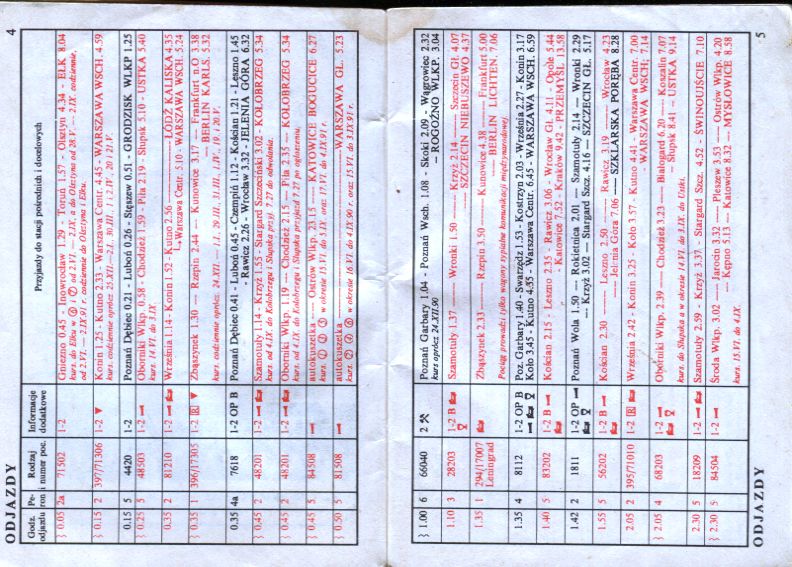 4
ODJAZDY
Godz. odjazdu
Pe-ron
Rodzaj i numer poc.
Informacje dodatkowe
Przyjazdy do stacji pośrednich i docelowych
} 0.05 2a 71502 1-2 Gniezno 0.45 - Inowrocław 1.29 - Toruń 1.57 - Olsztyn 4.34 - EŁK 8.04
} 0.15 2 397/71306 1-2 Konin 1.25 - Kutno 2.33 - Warszawa Centr. 4.45 - WARSZAWA WSCH. 4.59
0.15 5 4420 1-2 Poznań Dębiec 0.21 - Luboń 0.26 - Stęszew 0.51 - GRODZISK WLKP 1.25
} 0.25 5 48503 1-2 Oborniki Wlkp. 0.58 - Chodzież 1.59 - Piła 2.19 - Słupsk 5.10 - USTKA 5.40
kurs. 14.VI. do 3.IX.
0.35 2 81210 1-2 Września 1.14 - Konin 1.52 - Kutno 2.56 — ŁÓDŹ KALISKA 4.35
Warszawa Centr. 5.10 - WARSZAWA WSCH. 5.24
} 0.35 1 396/17305 1-2 R Zbąszynek 1.30 — Rzepin 2.44 — Kunowice 3.17 — Frankfurt n.O 3.38
— BERLIN KARLS. 5.32
0.35 4a 7618 1-2 OP B Poznań Dębiec 0.41 - Luboń 0.45 - Czempiń 1.12 - Kościan 1.21 - Leszno 1.45
- Rawicz 2.26 - Wrocław 3.32 - JELENIA GÓRA 6.32
} 0.45 2 48201 1-2 Szamotuły 1.14 - Krzyż 1.55 - Stargard Szczeciński 3.02 - KOŁOBRZEG 5.34
} 0.45 2 48201 1-2 Oborniki Wlkp. 1.19 — Chodzież 2.15 — Piła 2.35 — KOŁOBRZEG 5.34
} 0.45 5 84508 autokuszetka — Ostrów Wlkp. 23.15 — KATOWICE BOGUCICE 6.27
} 0.50 5 81508 autokuszetka — WARSZAWA GŁ. 5.23
} 1.00 6 66040 2 Poznań Garbary 1.04 - Poznań Wsch. 1.08 - Skoki 2.09 - Wągrowiec 2.32
kurs oprócz 24.XII.90 - ROGOŹNO WLKP. 3.04
1.10 3 28203 1-2 B Szamotuły 1.37 — Wronki 1.50 — Krzyż 2.14 — Szczecin Gł. 4.07
— SZCZECIN NIEBUSZEWO 4.37
1.35 1 294/17007 Leningrad Zbąszynek 2.33 — Rzepin 3.50 — Kunowice 4.38 — Frankfurt 5.00
— BERLIN LICHTEN. 7.06
Pociąg prowadzi tylko wagony sypialne komunikacji międzynarodowej.
1.35 4 8112 1-2 OP B Poz. Garbary 1.40 - Swarzędz 1.53 - Kostrzyn 2.03 - Września 2.27 - Konin 3.17
Koło 3.45 - Kutno 4.55 - Warszawa Centr. 6.45 - WARSZAWA WSCH. 6.59
1.40 5 83202 1-2 B Kościan 2.15 - Leszno 2.35 - Rawicz 3.06 - Wrocław Gł. 4.11 - Opole 5.44
- Katowice 7.52 - Kraków 9.42 - PRZEMYŚL 13.58
1.42 2 1811 1-2 OP Poznań Wola 1.50 — Rokietnica 2.01 — Szamotuły 2.14 — Wronki 2.29
— Krzyż 3.02 — Stargard Szcz. 4.16 — SZCZECIN GŁ. 5.17
1.55 5 56202 1-2 B Kościan 2.30 — Leszno 2.50 — Rawicz 3.19 — Wrocław 4.23
— Jelenia Góra 7.06 — SZKLARSKA PORĘBA 8.28
} 2.05 2 395/71010 1-2 R Września 2.42 - Konin 3.25 - Koło 3.57 - Kutno 4.41 - Warszawa Centr. 7.00
- WARSZAWA WSCH. 7.14
} 2.05 4 68203 1-2 Oborniki Wlkp. 2.39 — Chodzież 3.23 — Białogard 6.20 — Koszalin 7.07
kurs. do Słupska a w okresie 14.VI. do 3.IX. do Ustki. - Słupsk 8.41 - USTKA 9.14
2.30 5 18209 1-2 Szamotuły 2.59 - Krzyż 3.37 - Stargard Szcz. 4.52 - ŚWINOUJŚCIE 7.10
} 2.30 5 84504 1-2 Środa Wlkp. 3.02 — Jarocin 3.32 — Pleszew 3.53 — Ostrów Wlkp. 4.20
kurs. 15.VI. do 4.IX. — Kępno 5.13 — Katowice 8.32 — MYSŁOWICE 8.58
ODJAZDY
5